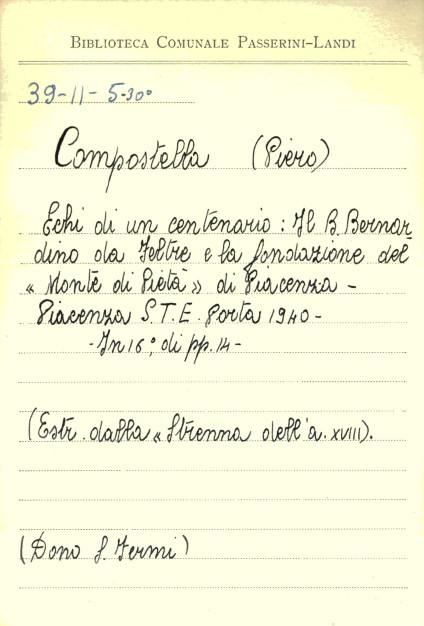 BIBLIOTECA COMUNALE PASSERINI-LANDI
39-11-5-30°
Compostella (Piero)
Echi di un centenario: Il B. Bernar
dino da Feltre e la fondazione del
« Monte di Pietà » di Piacenza -
Piacenza S.T.E. Porta 1940 -
- In 16°, di pp. 14 -
(Estr. dalla « Strenna dell'a. XVIII).
(Dono S. Fermi)